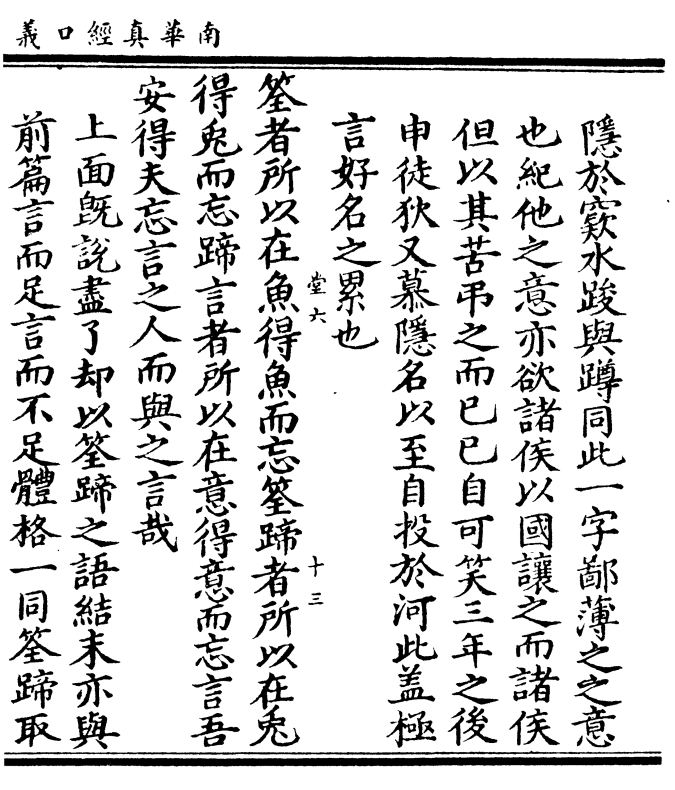 南華真經口義
隱於窾水踆與蹲同此一字鄙薄之之意
也紀他之意亦欲諸侯以國讓之而諸侯
但以其苦弔之而已已自可笑三年之後
申徒狄又慕隱名以至自投於河此盖極
言好名之累也
堂六
十三
筌者所以在魚得魚而忘筌蹄者所以在兔
得兔而忘蹄言者所以在意得意而忘言吾
安得夫忘言之人而與之言哉
上面旣說盡了却以筌蹄之語結末亦與
前篇言而足言而不足體格一同筌蹄取